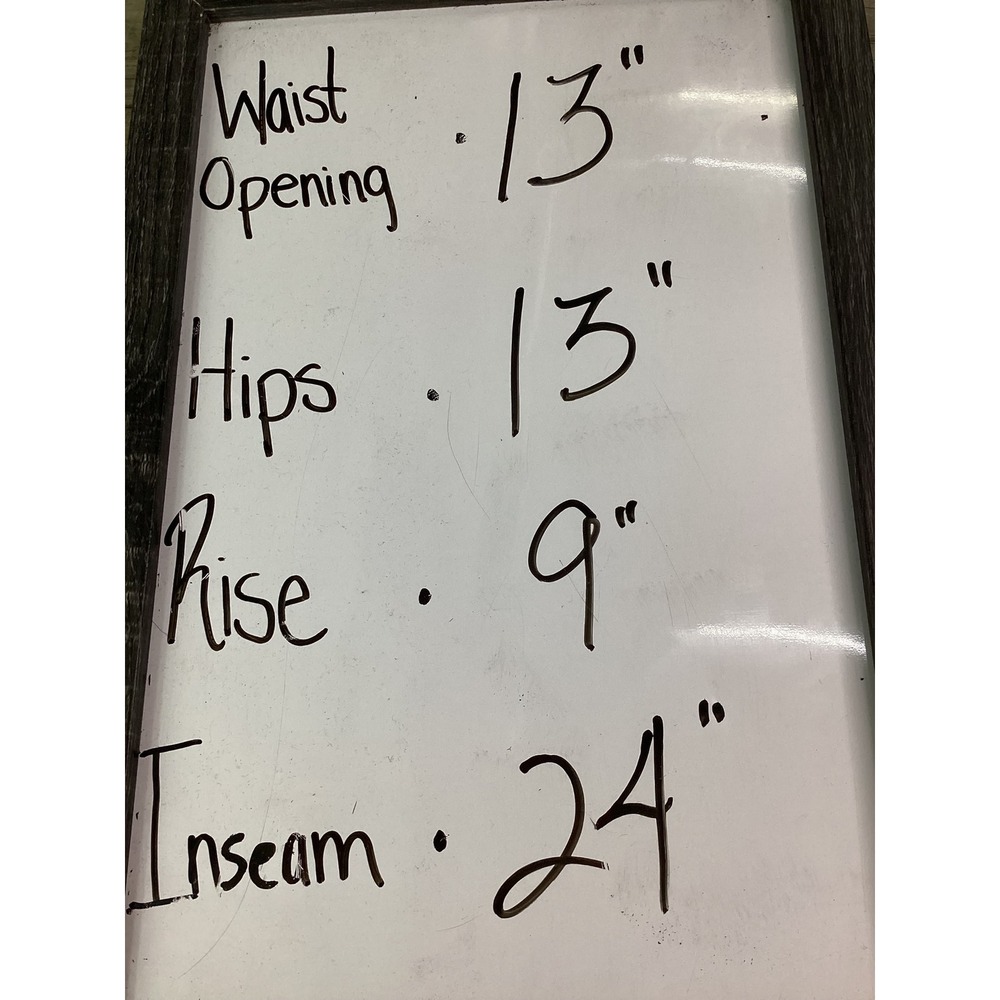 Waist
Opening · 13"
Hips · 13"
Rise · 9"
Inseam · 24"